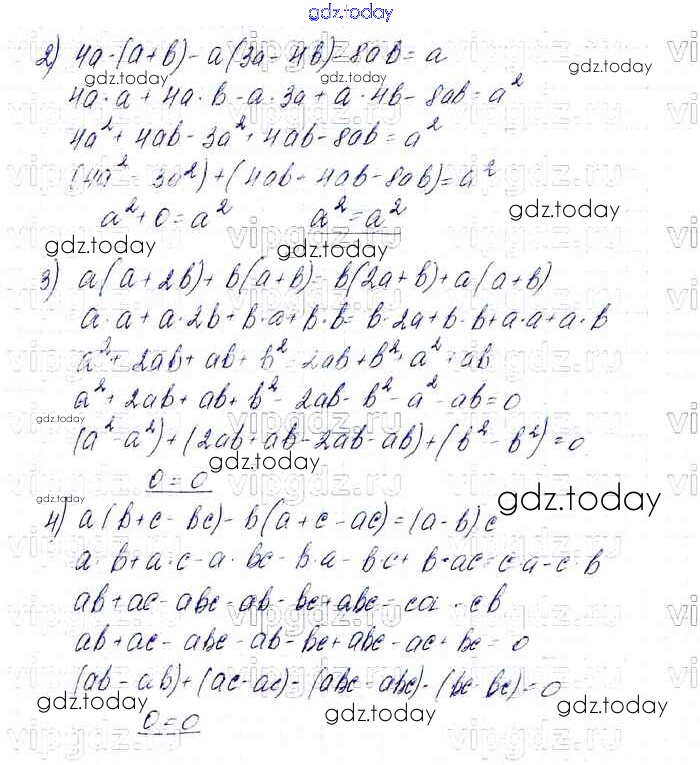 gdz.today
2) 4a·(a+b)-a(3a-4b)-8ab=a
gdz.today
gdz.today
4a·a+4a·b-a·3a+a·4b-8ab=a²
4a²+4ab-3a²+4ab-8ab=a²
vipgdz.ru
(4a²-3a²)+(4ab-4ab-8ab)=a²
a²+0=a² a²=a²
gdz.today
gdz.today
gdz.today
3) a(a+2b)+b(a+b)=b(2a+b)+a(a+b)
a·a+a·2b+b·a+b·b=b·2a+b·b+a·a+a·b
a²+2ab+ab+b²=2ab+b²+a²+ab
a²+2ab+ab+b²-2ab-b²-a²-ab=0
gdz.today
(a²-a²)+(2ab+ab-2ab-ab)+(b²-b²)=0
gdz.today
0=0
gdz.today
gdz.today
4) a(b+c-bc)-b(a+c-ac)=(a-b)c
a·b+a·c-a·bc-b·a-bc+b·ac=c·a-c·b
ab+ac-abc-ab-bc+abc=ca-cb
ab+ac-abc-ab-bc+abc-ac+bc=0
(ab-ab)+(ac-ac)-(abc-abc)-(bc-bc)=0
gdz.today
gdz.today
gdz.today
0=0
vipgdz.ru